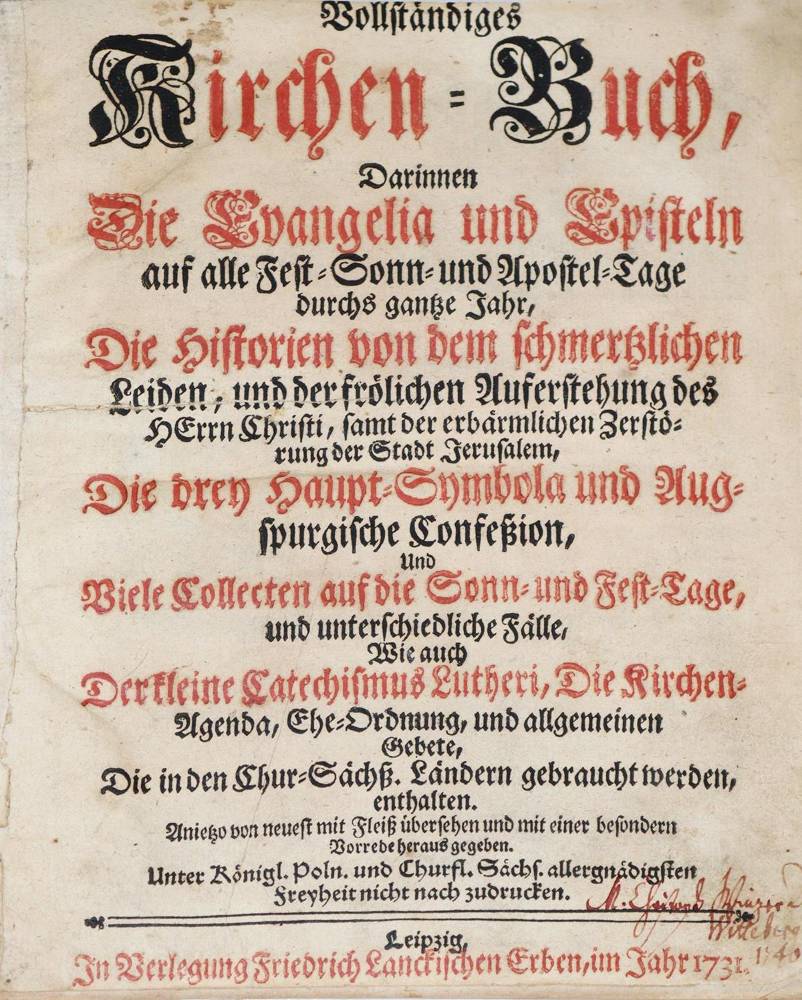 Vollständiges
Kirchen-Buch,
Darinnen
Die Evangelia und Episteln
auf alle Fest-Sonn-und Apostel-Tage
durchs gantze Jahr,
Die Historien von dem schmertzlichen
Leiden, und der frölichen Auferstehung des
HErrn Christi, samt der erbärmlichen Zerstö-
rung der Stadt Jerusalem,
Die drey Haupt-Symbola und Aug-
spurgische Confeßion,
Und
Viele Collecten auf die Sonn-und Fest-Tage,
und unterschiedliche Fälle,
Wie auch
Der kleine Catechismus Lutheri, Die Kirchen-
Agenda, Ehe-Ordnung, und allgemeinen
Gebete,
Die in den Chur-Sächß. Ländern gebraucht werden,
enthalten.
Anietzo von neuest mit Fleiß übersehen und mit einer besondern
Vorrede heraus gegeben.
Unter Königl. Poln. und Churfl. Sächs. allergnädigsten
Freyheit nicht nach zudrucken.
M.
Leipzig,
In Verlegung Friedrich Lanckischen Erben, im Jahr 1731.